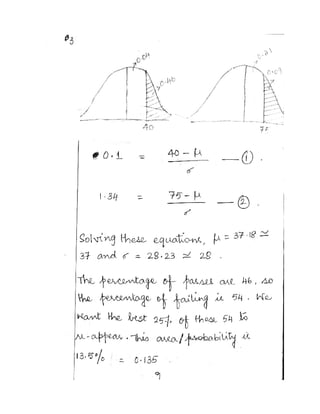 0.04
0.46
40
0.09
75
0.1 = 40 - μ / σ —①.
1.34 = 75 - μ / σ —②.
Solving these equations, μ = 37.18 ≃
37 and σ = 28.23 ≃ 28.
The percentage of passes are 46, so
the percentage of failing is 54. We
want the best 25% of those 54 to
re-appear. This area/probability is
13.5% = 0.135
9